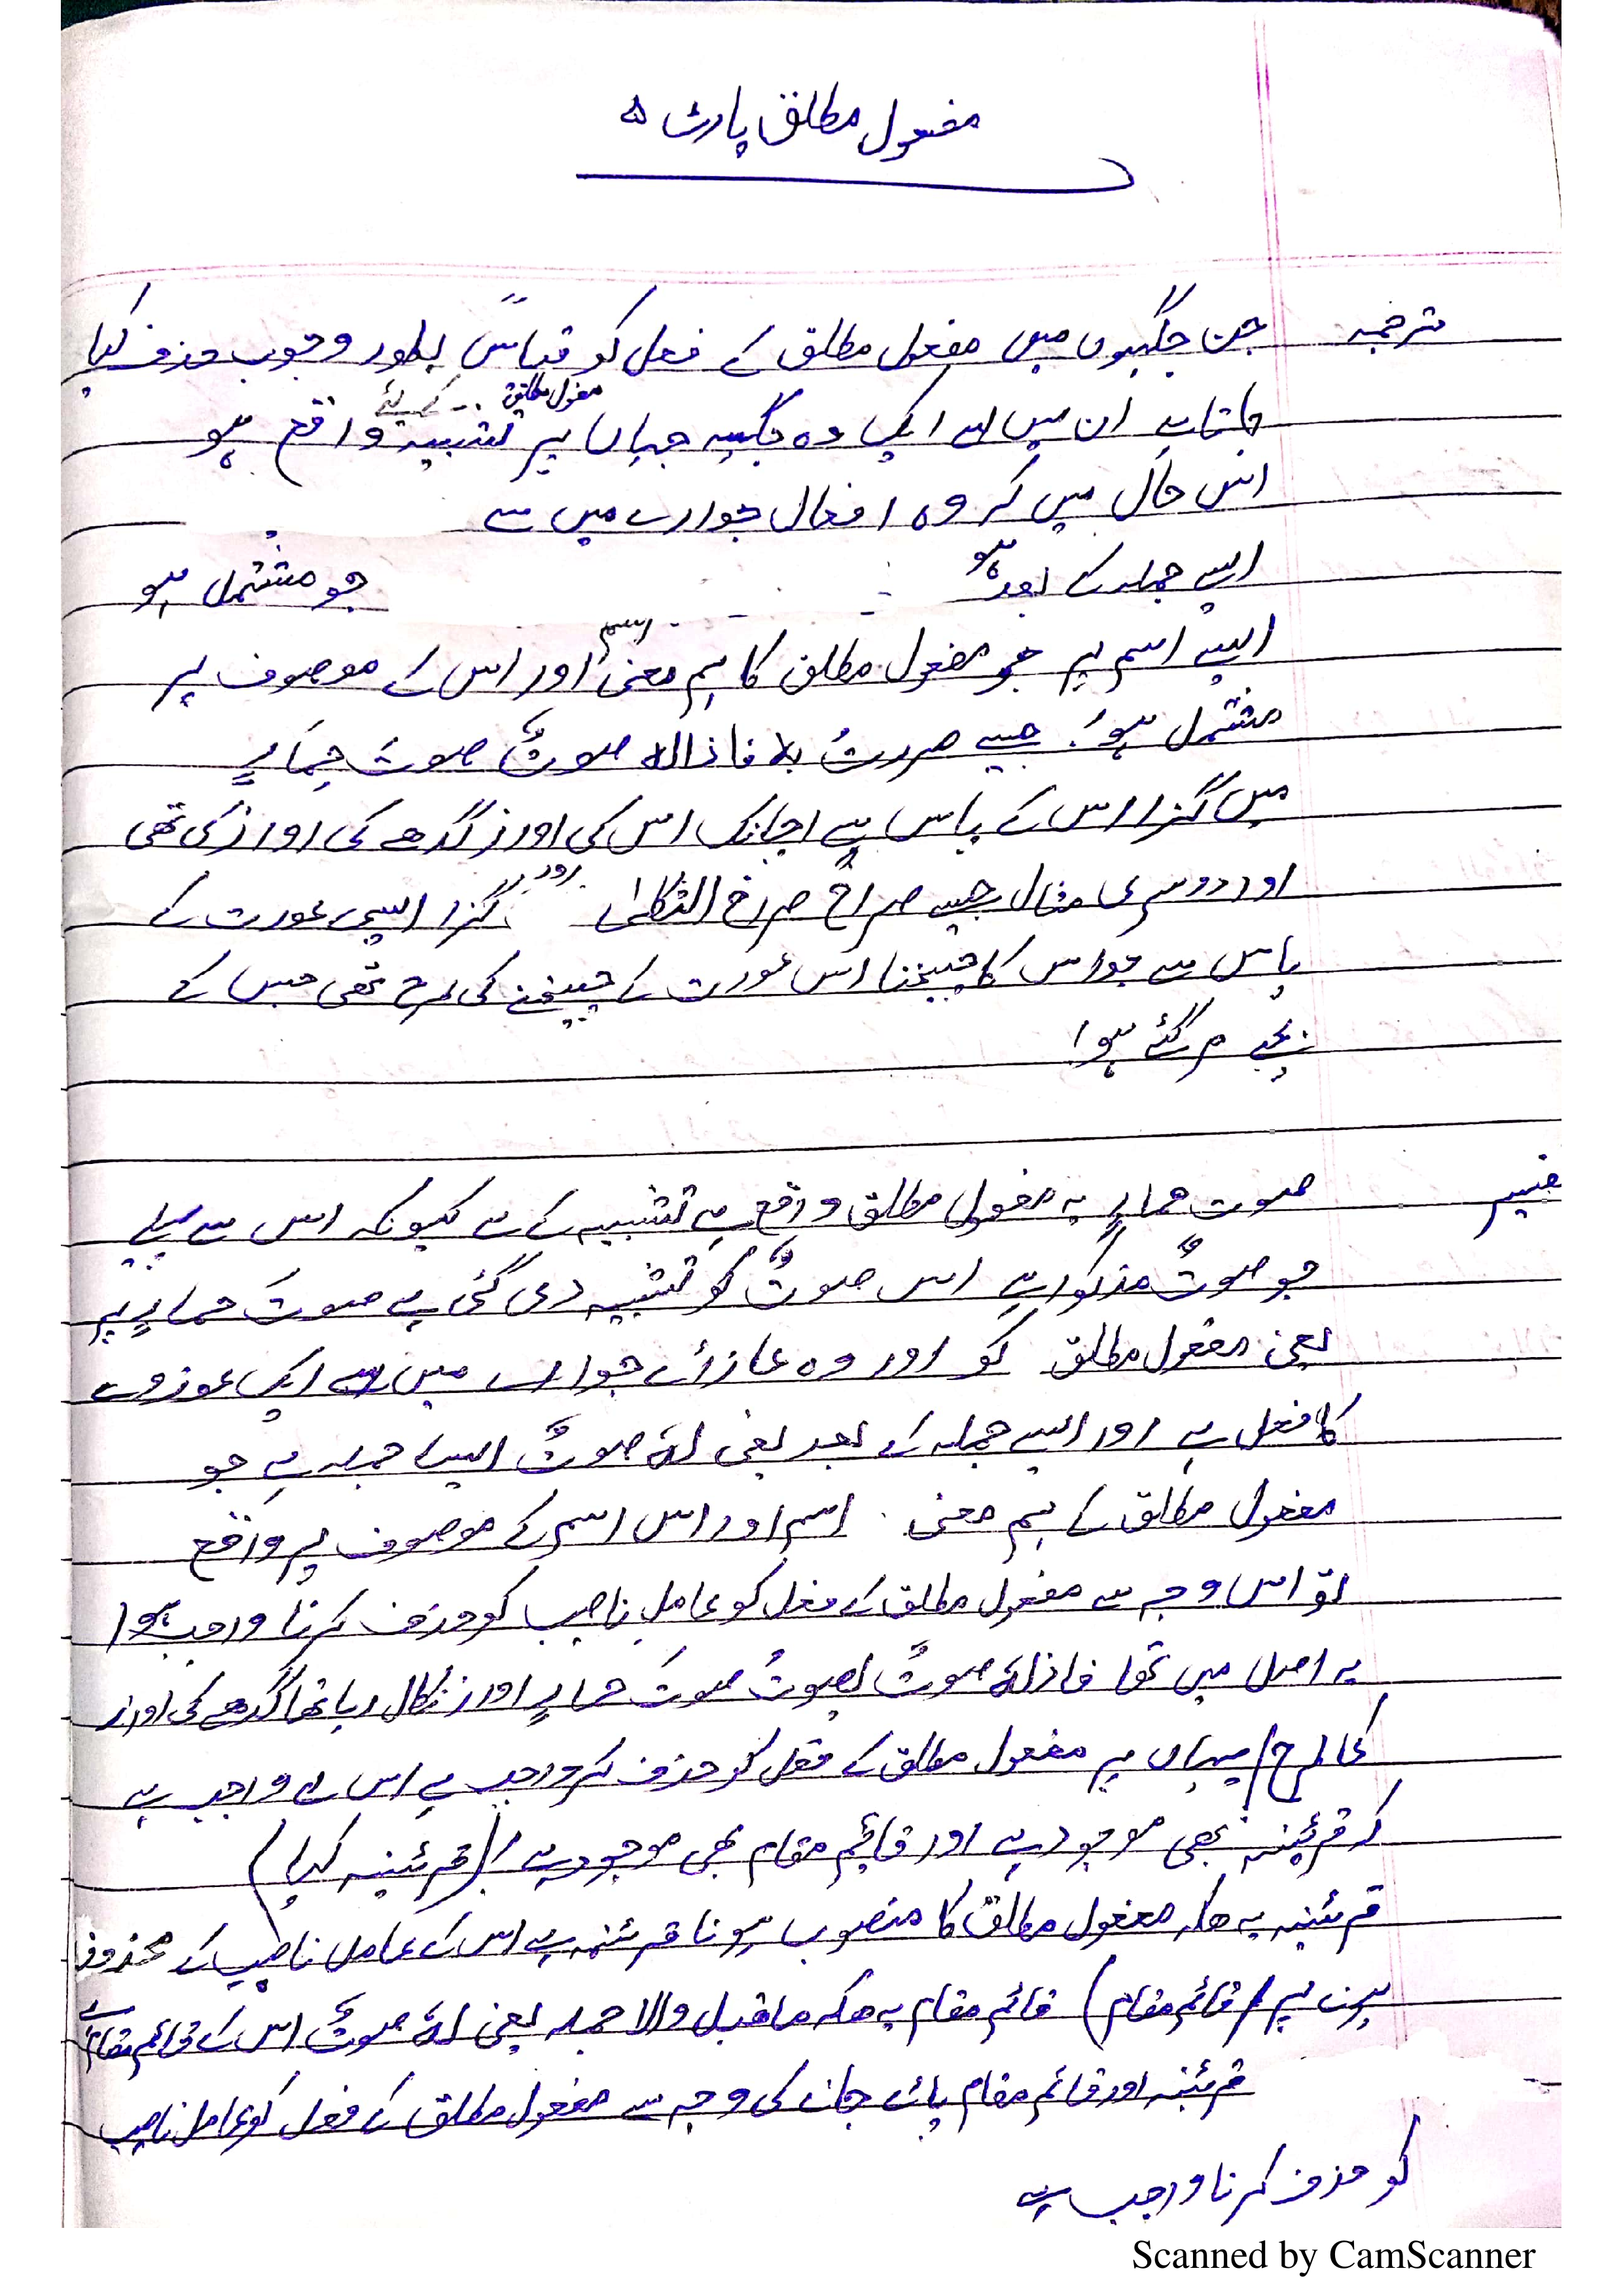 مفعول مطلق پارٹ ۵
ترجمہ جن جگہوں میں مفعول مطلق کے فعل کو قیاساً بطور وجوب حذف کیا
جاتا ہے ان میں سے ایک وہ جگہ ہے جہاں پر مفعول مطلق تشبیہ کے لئے واقع ہو
اس حال میں کہ وہ افعال جوارے میں سے
ایسے جملہ کے بعد ہو جو مشتمل ہو
ایسے اسم پر جو مفعول مطلق کا ہم معنی اسم اور اس کے موصوف پر
مشتمل ہو جیسے مررت بہ فاذالہ صوتٌ صوتَ حِمَارٍ
میں گزرا اس کے پاس سے اچانک اس کی اورز گدھے کی اواز کی تھی
اور دوسری مثال جیسے صراخٌ صراخ الثکلیٰ گزرا ایسی عورت کے
پاس سے جو اس کا چیخنا اس عورت کے چیخنے کی طرح تھی جس کے
بچے مر گئے ہوا
صوت حمارٍ یہ مفعول مطلق واقع ہے تشبیہ کے لے کیونکہ اس سے پہلے
جو صوتٌ مذکور ہے اس صوتٌ کو تشبیہ دی گئی ہے صوتَ حمارٍ پر
یعنی مفعول مطلق کو اور وہ عازائے جوارے میں سے ایک عوزوے
کا فعل ہے اور ایسے جملہ کے بعد یعنی لہٗ صوتٌ ایسا جملہ ہے جو
مفعول مطلق کے ہم معنی اسم اور اس اسم کے موصوف پر واقع
تو اس وجہ سے مفعول مطلق کے فعل کو عامل ناصب کو حذف کرنا واجب ہوا
یہ اصل میں تھا فاذالہٗ صوتٌ یصوتُ صوتَ حمارٍ اورز نکال رہا تھا گدھے کی اواز
کی طرح / یہاں پر مفعول مطلق کے فعل کو حذف کر واجب ہے اس لے واجب ہے
کہ قرئینہ بھی موجود ہے اور قائم مقام بھی موجود ہے (قرئینہ کیا)
قرئینہ یہ ھکہ مفعول مطلق کا منصوب ہونا قرئنہ ہے اس کے عامل ناصب کے محذوف
ہونے پر (قائم مقام) قائم مقام یہ ھکہ ماقبل والا جملہ یعنی لہٗ صوتٌ اس کے قائم مقام ہے
قرئینہ اور قائم مقام پائے جانے کی وجہ سے مفعول مطلق کے فعل کو عامل ناصب
کو حذف کرنا واجب ہے
Scanned by CamScanner